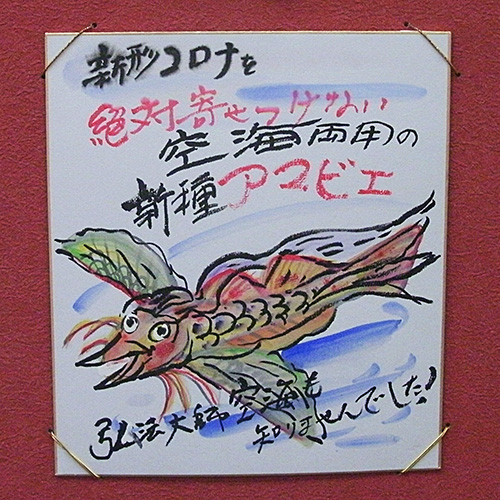 新形コロナを
絶対寄せつけない
空海両用の
新種アマビエ
弘法大師空海も
知りませんでした!